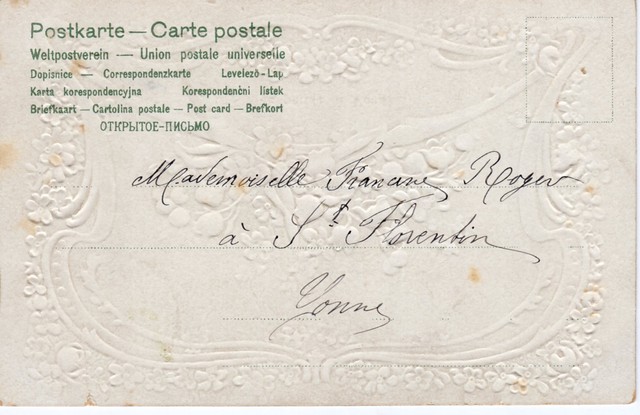 Postkarte — Carte postale
Weltpostverein — Union postale universelle
Dopisnice — Correspondenzkarte Levelező-Lap
Karta korespondencyjna Korespondenční lístek
Briefkaart — Cartolina postale — Post card — Brefkort
ОТКРЫТОЕ-ПИСЬМО
Mademoiselle Roger
à St Florentin
Yonne